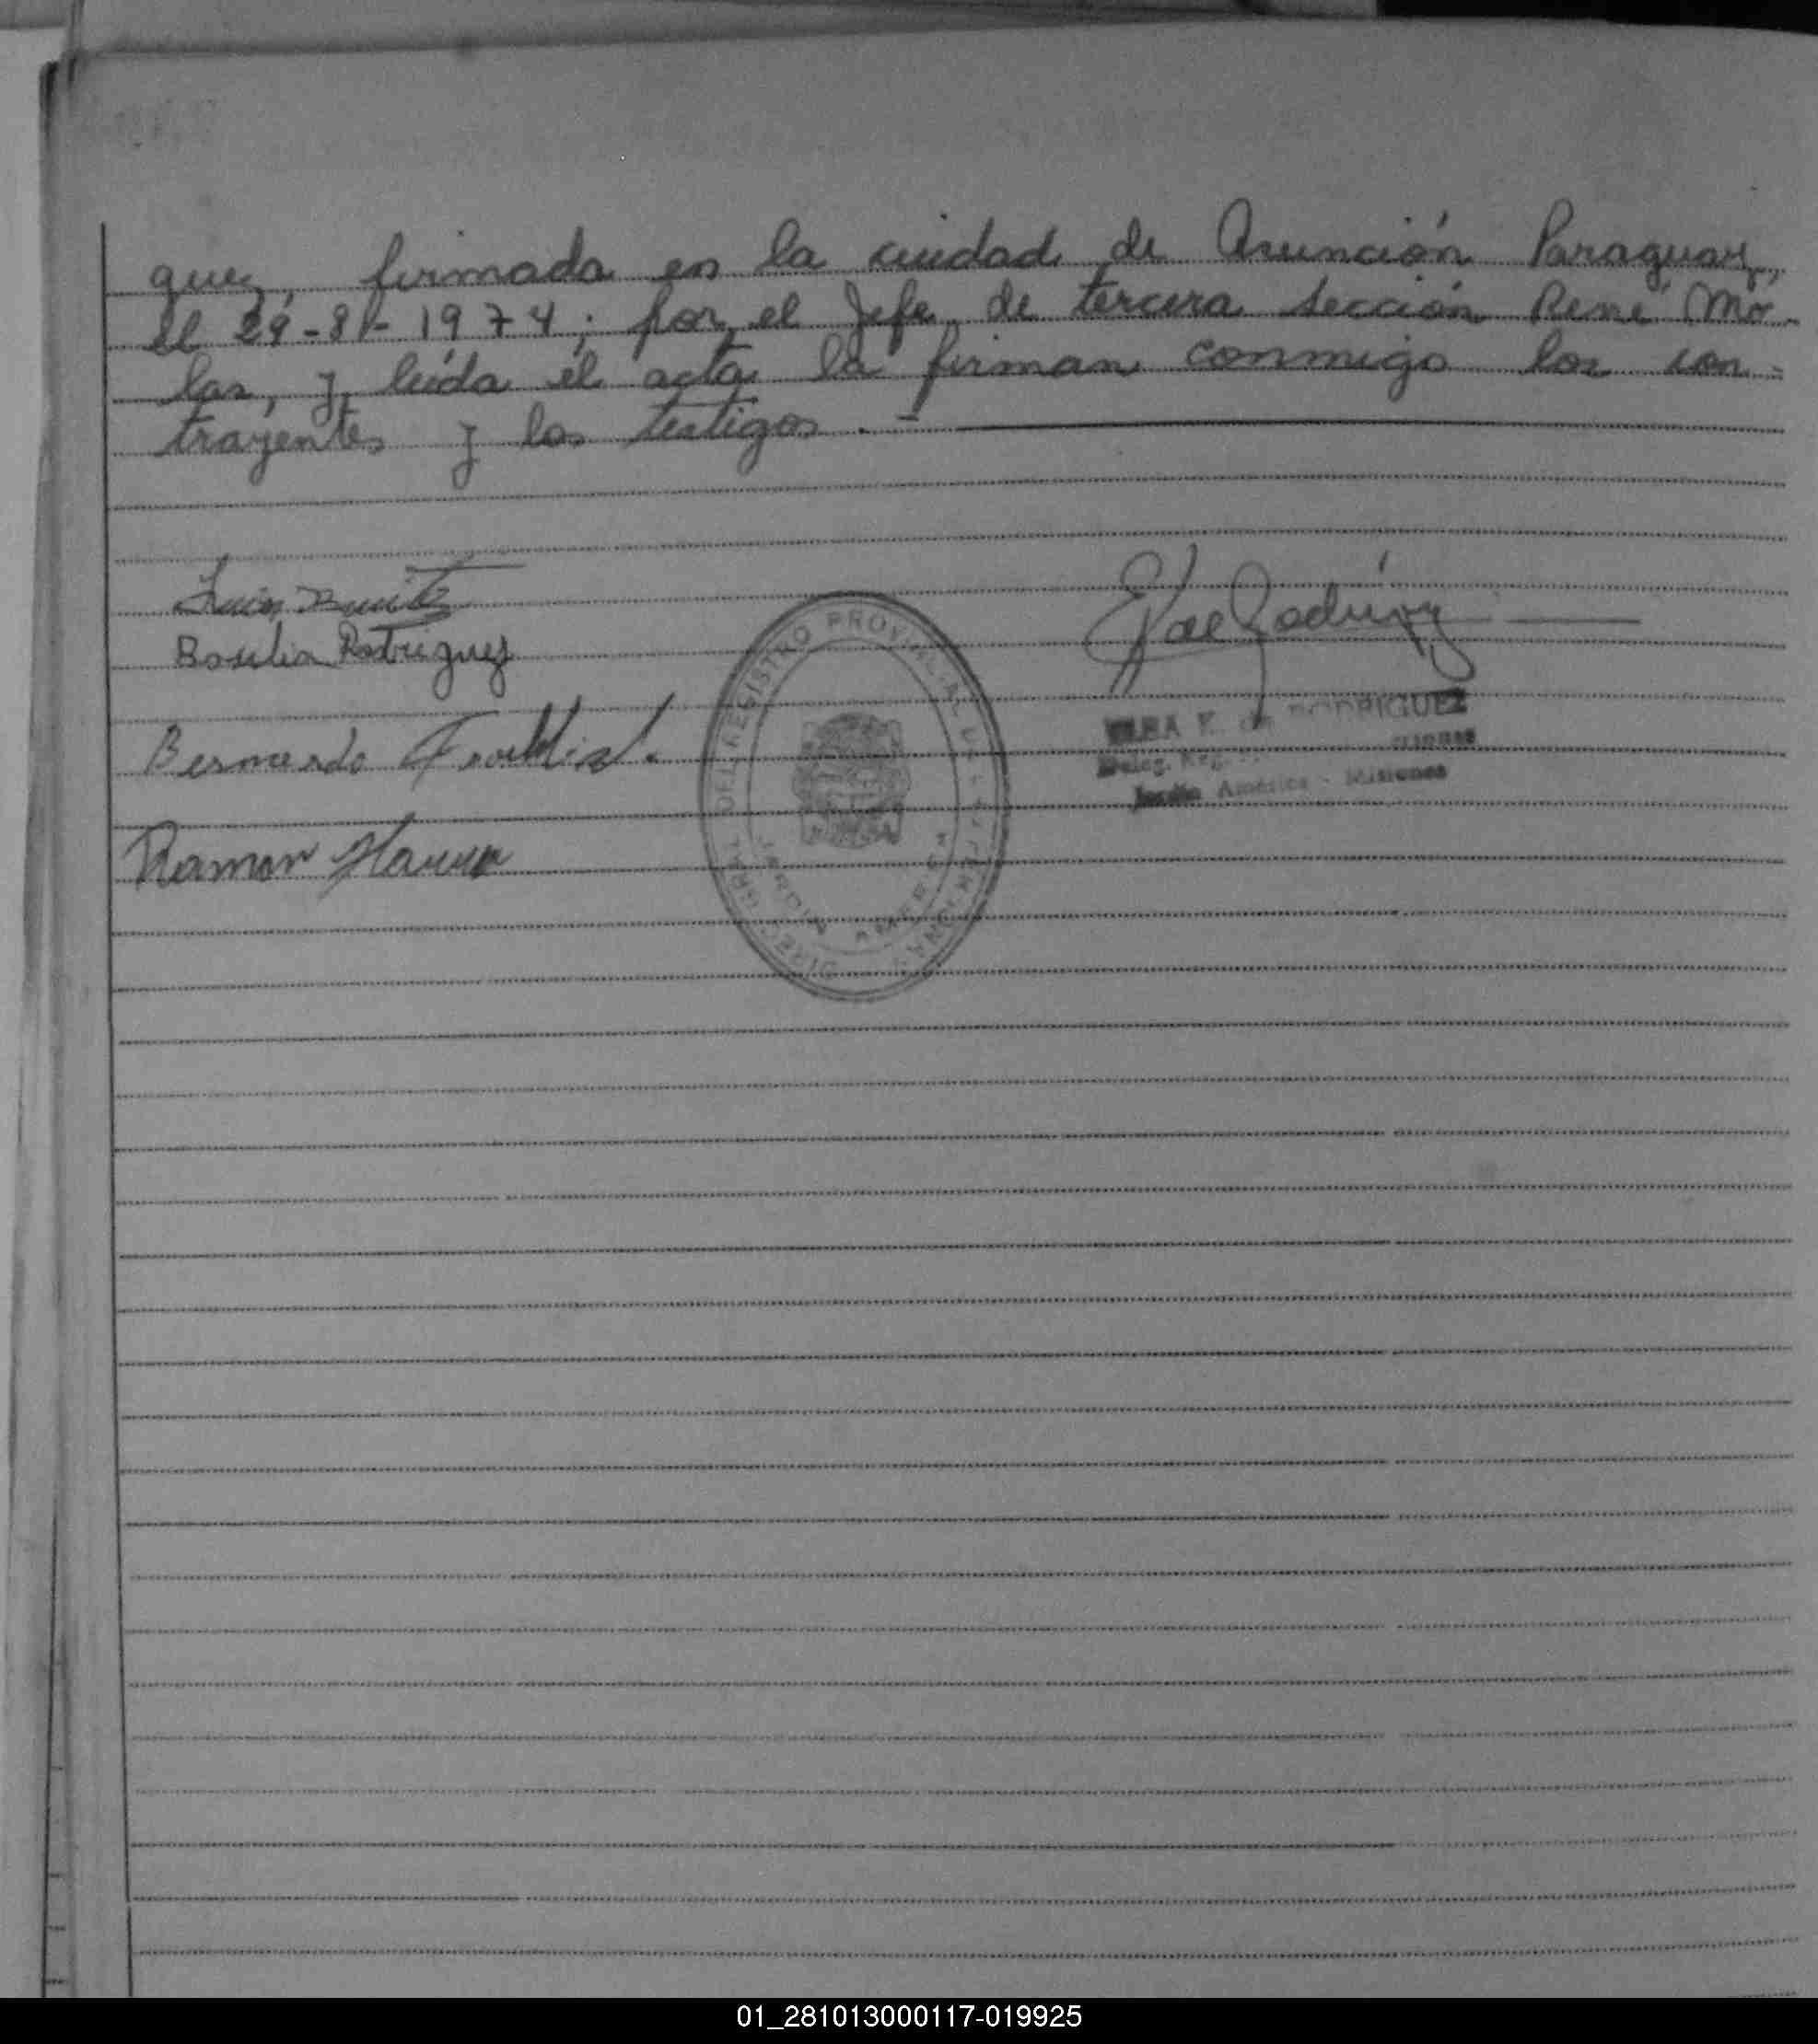 quez, firmada en la ciudad de Asunción Paraguay,
el 29-8-1974; por el Jefe de tercera sección René Mo-
las, y leída el acta la firman conmigo los con-
trayentes y los testigos. -
Luis Benitez
Basilia Rodriguez
Bernardo
Ramon
REGISTRO PROVINCIAL DE LAS PERSONAS
ELBA F. de RODRIGUEZ
Deleg. Reg.
Jardín América - Misiones
01_281013000117-019925